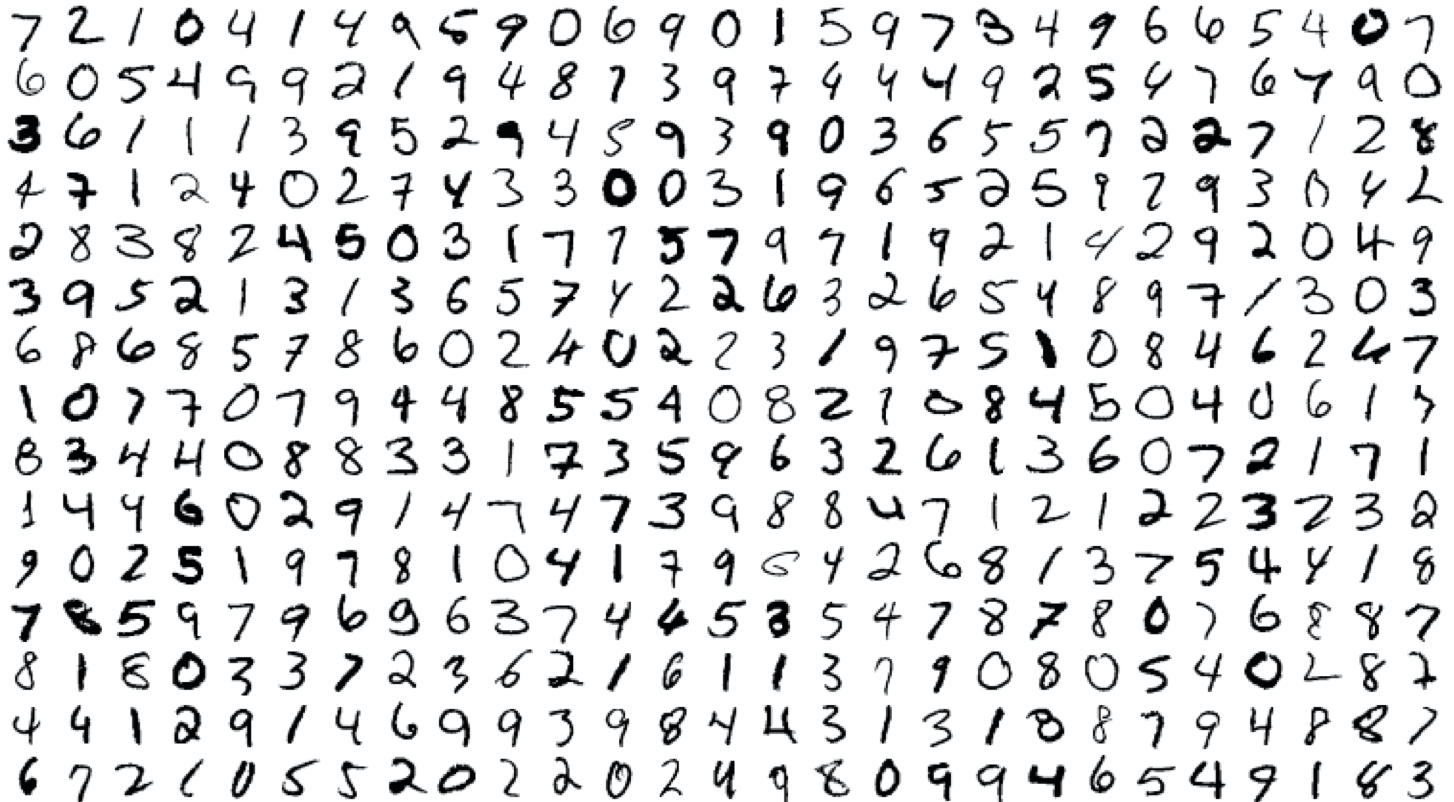 7 2 1 0 4 1 4 9 5 9 0 6 9 0 1 5 9 7 3 4 9 6 6 5 4 0 7
6 0 5 4 9 9 2 1 9 4 8 7 3 9 7 4 4 4 9 2 5 4 7 6 7 9 0
3 6 1 1 1 3 9 5 2 9 4 5 9 3 9 0 3 6 5 5 7 2 2 7 1 2 8
4 7 1 2 4 0 2 7 4 3 3 0 0 3 1 9 6 5 2 5 9 7 9 3 0 4 2
2 8 3 8 2 4 5 0 3 1 7 7 5 7 9 7 1 9 2 1 4 2 9 2 0 4 9
3 9 5 2 1 3 1 3 6 5 7 4 2 2 6 3 2 6 5 4 8 9 7 1 3 0 3
6 8 6 8 5 7 8 6 0 2 4 0 2 2 3 1 9 7 5 1 0 8 4 6 2 6 7
1 0 7 7 0 7 9 4 4 8 5 5 4 0 8 2 7 0 8 4 5 0 4 0 6 1 5
8 3 4 4 0 8 8 3 3 1 7 3 5 9 6 3 2 6 1 3 6 0 7 2 1 7 1
1 4 4 6 0 2 9 1 4 7 4 7 3 9 8 8 4 7 1 2 1 2 2 3 2 3 2
9 0 2 5 1 9 7 8 1 0 4 1 7 9 6 4 2 6 8 1 3 7 5 4 4 1 8
7 8 5 9 7 9 6 9 6 3 7 4 4 5 3 5 4 7 8 7 8 0 7 6 8 8 7
8 1 8 0 3 3 7 2 3 6 2 1 6 1 1 3 7 9 0 8 0 5 4 0 2 8 7
4 4 1 2 9 1 4 6 9 9 3 9 8 4 4 3 1 3 1 8 8 7 9 4 8 8 7
6 7 2 1 0 5 5 2 0 2 2 0 2 4 9 8 0 9 9 4 6 5 4 9 1 8 3